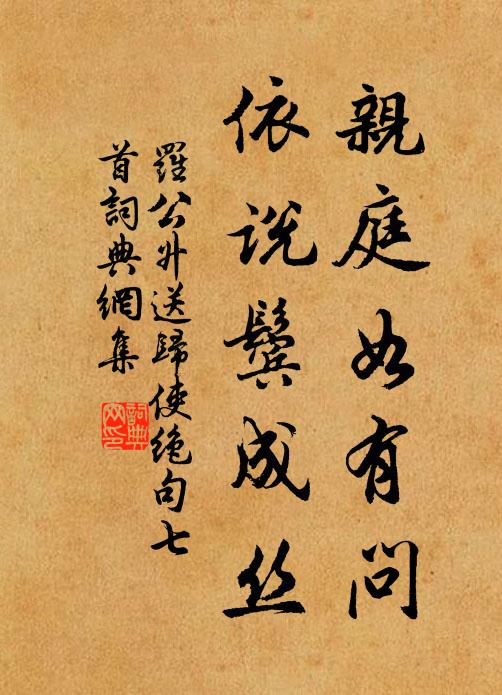 親庭如有問
依說鬓成丝
羅公升送歸使絶句七
首詞典網集
詞典
网印